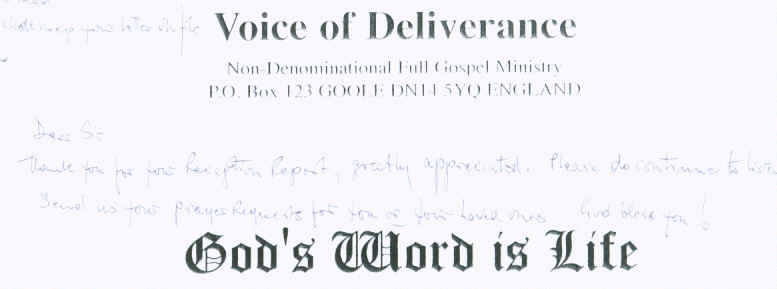 your letter on file
Voice of Deliverance
Non-Denominational Full Gospel Ministry
P.O. Box 123 GOOLE DN14 5YQ ENGLAND
Dear Sir
Thank you for your Reception Report, greatly appreciated. Please do continue to listen
Send us your prayer Requests for you or your Loved ones God bless you!
God's Word is Life